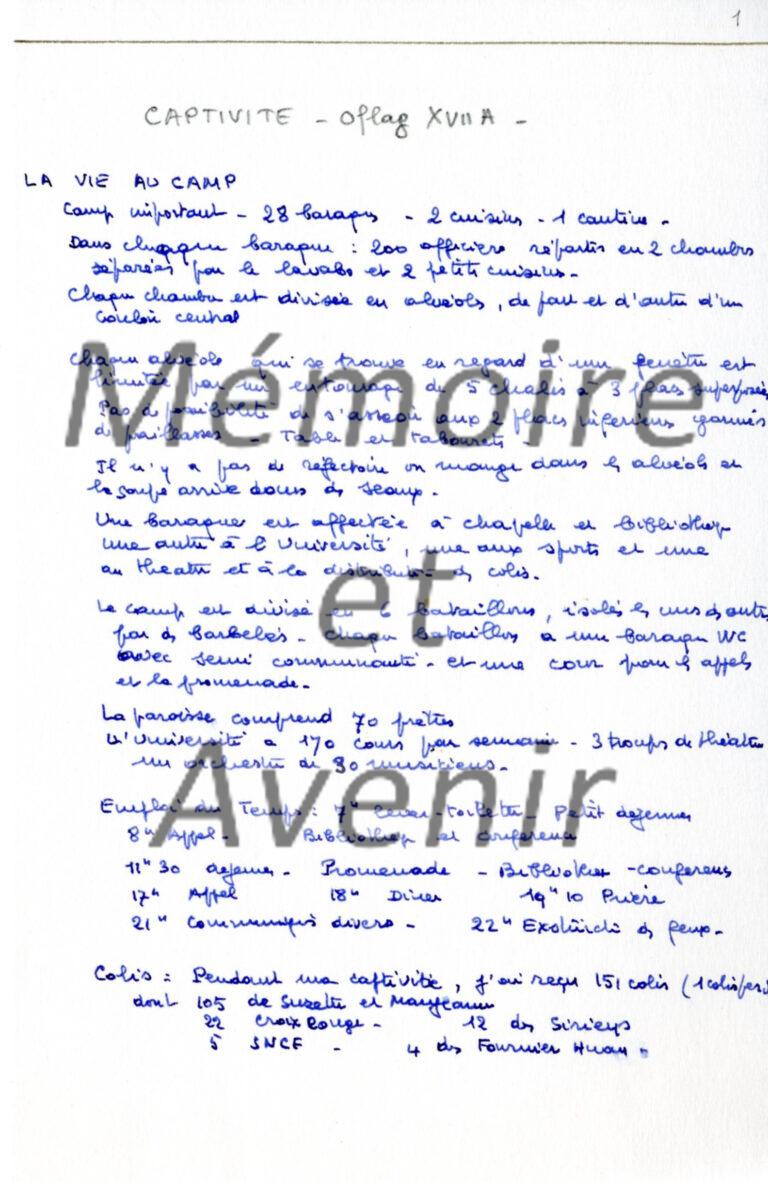 1
CAPTIVITE - Oflag XVII A -
LA VIE AU CAMP
Camp important - 28 baraques - 2 cuisines - 1 cantine -
Dans chaque baraque : 200 officiers répartis en 2 chambres
séparées par le lavabo et 2 petites cuisines -
Chaque chambre est divisée en alvéoles, de part et d'autre d'un
couloir central
Chaque alvéole qui se trouve en regard d'une fenêtre est
limitée par un entourage de 5 chalis à 3 places superposées
Pas de possibilité de s'asseoir aux 2 places inférieures garnies
de paillasses - Table et tabourets -
Il n'y a pas de réfectoire on mange dans les alvéoles et
la soupe arrive dans des seaux.
Une baraque est affectée à chapelle et Bibliothèque
une autre à l'Université, une aux sports et une
au theatre et à la distribution des colis.
Le camp est divisé en 6 bataillons, isolés les uns des autres
par des barbelés - chaque bataillon a une baraque WC
avec semi communauté - et une cour pour les appels
et la promenade.
La paroisse comprend 70 prêtres
L'Université a 170 cours par semaine - 3 troupes de théatre
un orchestre de 30 musiciens -
Emploi du Temps : 7h lever - toilette - Petit dejeuner
8h Appel - Bibliothèque et conference
11h 30 dejeuner - Promenade - Bibliothèque - conferences
17h Appel 18h Diner 19h 10 Prière
21h Communiqués divers - 22h Extinction des feux -
Colis : Pendant ma captivité, j'ai reçu 151 colis (1 colis par
dont 105 de Suzette et Maryjeanne
22 Croix Rouge - 12 des Sirieys
5 SNCF - 4 des Fournier
Mémoire
et
Avenir